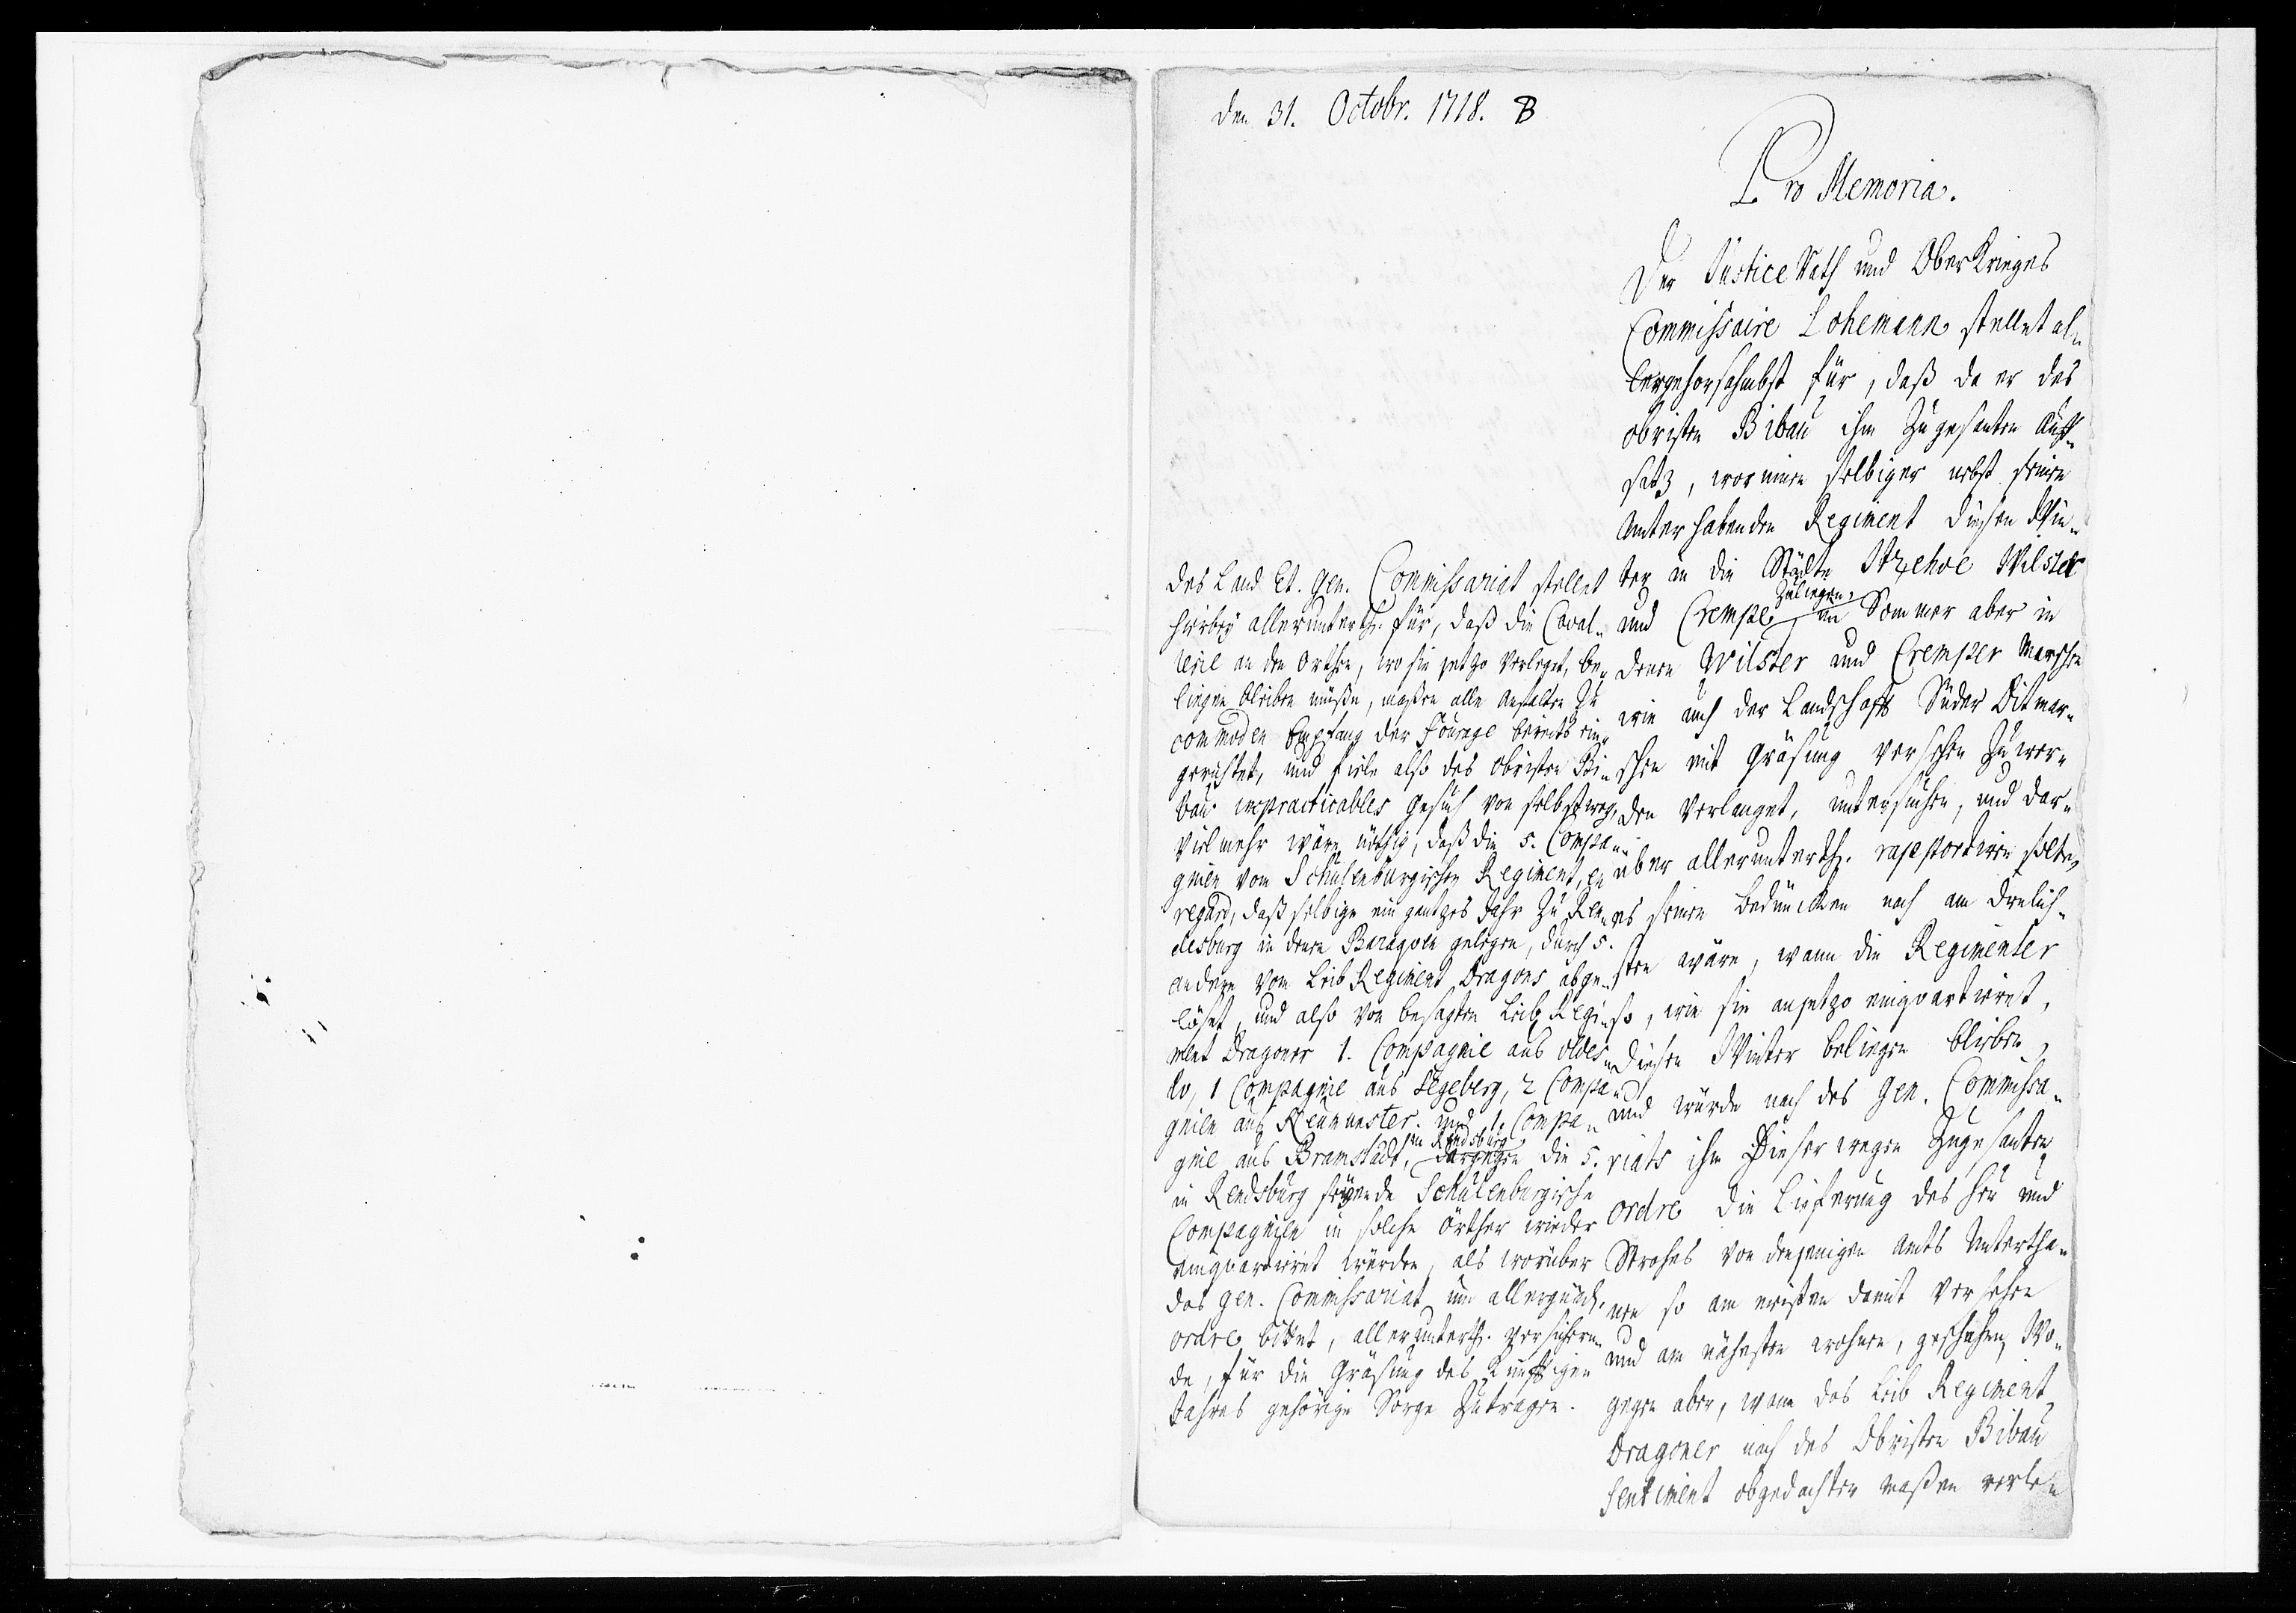 den 31. Octobr. 1718. B
Pro Memoria.
Der Justice Rath und Ober Krieges
Commissaire Lohemann stellet al¬
lergehorsahmbst für, daß da er des
obristen Bibau ihm zugesanten Auff¬
satz, worinnen selbiger nebst seinen
Unterhabenden Regiment diesen Win¬
ter in die Städte Itzehoe Wilster
und Crempe zuliegen, im Sommer aber in
denen Wilster und Cremper Marschen
wie auch der Landschafft Süder Ditmar¬
schen mit Gräsung versehen zu wer¬
den verlanget, untersuchen, und dar¬
über allerunterth. rapportiren solte,
es seinen bedüncken nach am dienlich¬
sten wäre, wann die Regimenter
so, wie sie anjetzo einqvartiret,
diesen Winter beliegen blieben,
und würde nach des Gen. Commissa¬
riats ihm dieserwegen zugesanten
ordre die Lieferung des Heu und
Strohes von denjenigen Amts Untertha¬
nen so am meisten damit versehen
und am nähesten wohnen, geschehen, Wo¬
gegen aber, wann das Leib Regiment
Dragoner nach des Obristen Bibau
Sentiment obgedachter maßen verle¬
Das Land Et. Gen. Commissariat stellet
hierbey allerunterth. für, daß die Caval¬
lerie an den Orthen, wo sie jetzo verleget, be¬
liegen bleiben müße, maßen alle Anstalten zu
commoden Empfang der Fourage bereits ein¬
gerichtet, und fiele also des Obristen Bi¬
bau impracticables Gesuch von selbst weg,
vielmehr wäre nöthig, daß die 5. Compa¬
gnien vom Schulenburgischen Regiment, en
regard, daß selbige ein gantzes Jahr zu Ren¬
desburg in denen Baraqven gelegen, durch 5.
andere vom Leib Regiment Dragons abge¬
löset, und also von besagten Leib Regi¬
ment Dragoner 1. Compagnie aus Oldes¬
lo, 1 Compagnie aus Segeberg, 2 Compa¬
gnien aus Neumunster und 1. Compa¬
gnie aus Bramstädt, in Rendsburg dargegen die 5.
in Rendsburg seyende Schulenburgische
Compagnien in solche örther wieder
einqvartiret würden, als worüber
das Gen. Commissariat um allergnädi.
ordre bittet, allerunterth. versichern¬
de, für die Gräsung des Künfftigen
Jahres gehörige Sorge zutragen.